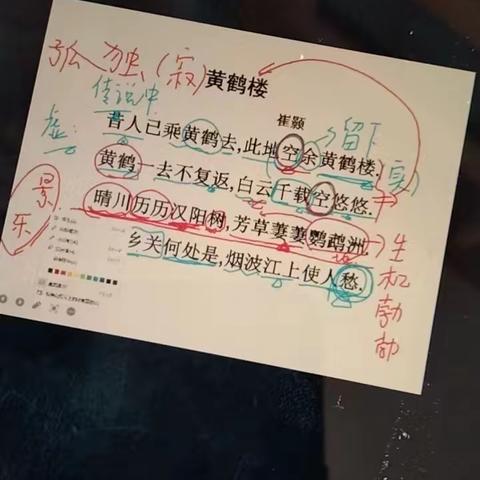 孤独(寂)黄鹤楼
崔颢
传说中
留下
虚:
昔人已乘黄鹤去,此地空余黄鹤楼.
(实)
黄鹤一去不复返,白云千载空悠悠.
景
乐
晴川历历汉阳树,芳草萋萋鹦鹉洲.
生机勃勃
乡关何处是,烟波江上使人愁.